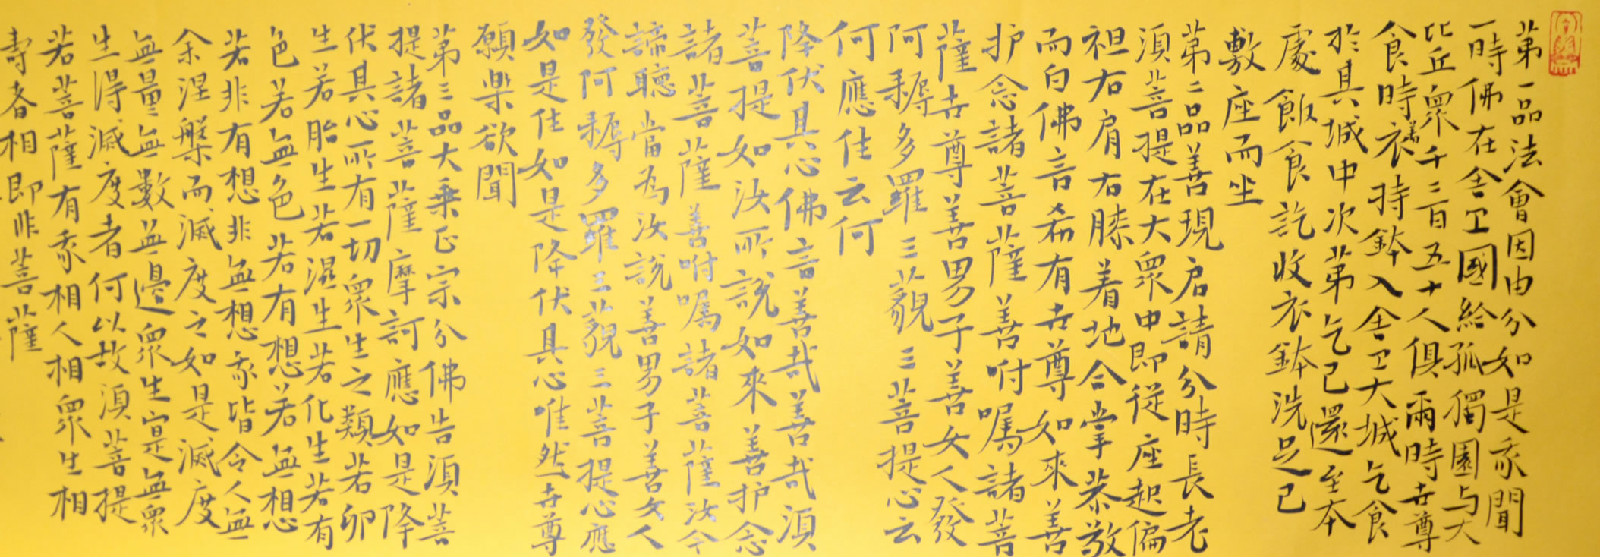 第一品法會因由分如是我聞
一時佛在舍卫國給孤獨園与大
比丘衆千二百五十人俱爾時世尊
食時衣持鉢入舍卫大城乞食
於其城中次第乞已還至本
處飯食訖收衣鉢洗足已
敷座而坐
第二品善現启請分時長老
須菩提在大衆中即從座起偏
袒右肩右膝着地合掌恭敬
而白佛言希有世尊如來善
护念諸菩薩善咐嘱諸菩
薩世尊善男子善女人發
阿耨多羅三藐三菩提心云
何應住云何
降伏其心佛言善哉善哉須
菩提如汝所說如來善护念
諸菩薩善咐嘱諸菩薩汝今
諦聽當為汝說善男子善女人
發阿耨多羅三藐三菩提心應
如是住如是降伏其心唯然世尊
願樂欲聞
第三品大乘正宗分佛告須菩
提諸菩薩摩訶應如是降
伏其心所有一切衆生之類若卵
生若胎生若濕生若化生若有
色若無色若有想若無想
若非有想非無想我皆令人無
余涅槃而滅度之如是滅度
無量無數無邊衆生實無衆
生得滅度者何以故須菩提
若菩薩有我相人相衆生相
壽者相即非菩薩